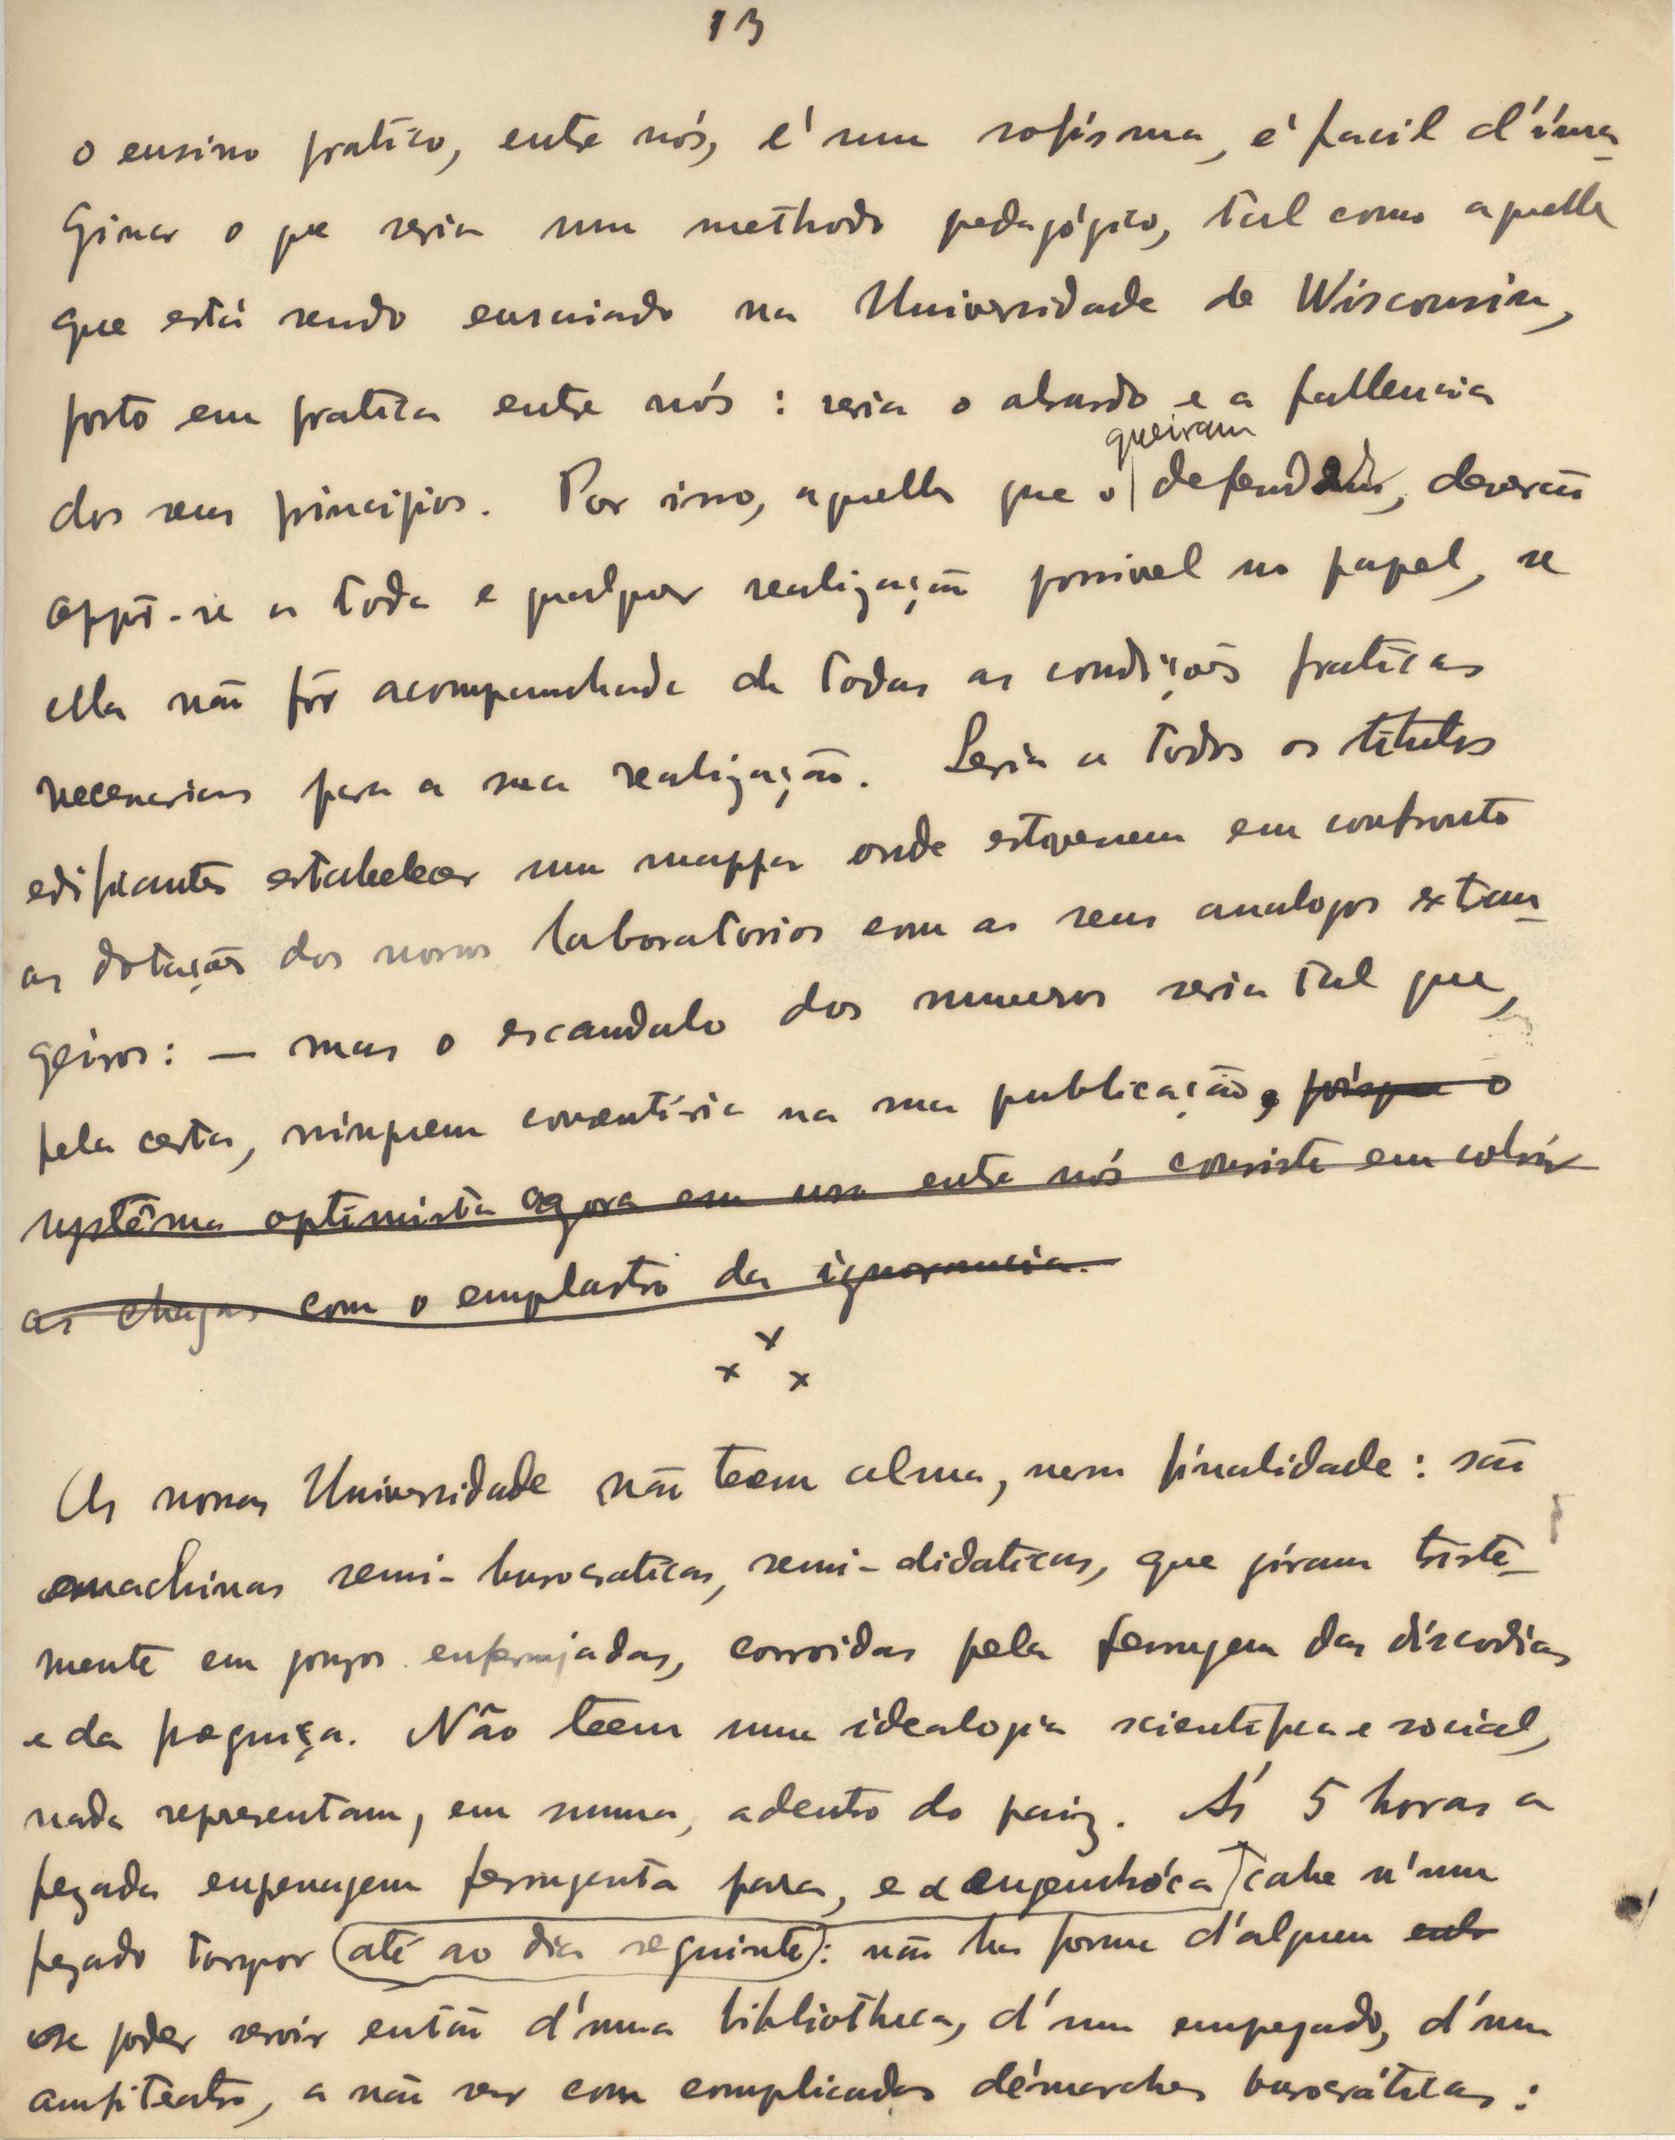 13
o ensino pratico, entre nós, é um sofisma, é facil d'ima-
ginar o que seria um methodo pedagógico, tal como aquelle
que está sendo ensaiado na Universidade de Wisconsin,
posto em pratica entre nós: seria o absurdo e a fallencia
queiram
dos seus principios. Por isso, aquelles que o defender, deverão
oppôr-se a toda e qualquer realização possivel no papel, se
ella não fôr acompanhada de todas as condições praticas
necessarias para a sua realização. Seria a todos os titulos
edificante estabelecer um mappa onde estivessem em confronto
as dotações dos nossos laboratorios com as seus analogos extran-
geiros: — mas o escandalo dos numeros seria tal que,
pela certa, ninguem consentiria na sua publicação, porque o
systêma optimista agora em uso entre nós consiste em cobrir
as chagas com o emplastro da ignorancia.
x x x
As nossas Universidade não teem alma, nem finalidade: são
machinas semi-burocraticas, semi-didaticas, que giram triste-
mente em gonzos enferrujadas, corroidas pela ferrugem das discordias
e da preguiça. Não teem uma idealogia scientifica e social,
nada representam, em summa, adentro do paiz. Ás 5 horas a
pezada engrenagem ferrugenta para, e a engenhóca cahe n'um
pezado torpor até ao dia seguinte: não ha forma d'alguem
se poder servir então d'uma bibliotheca, d'um empregado, d'um
anfiteatro, a não ser com complicadas démarches burocráticas: